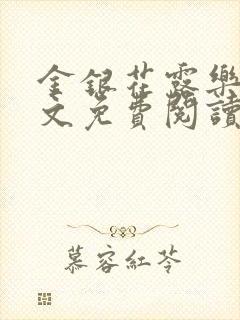 金銀花露樂
文免費閱讀
慕容紅苓